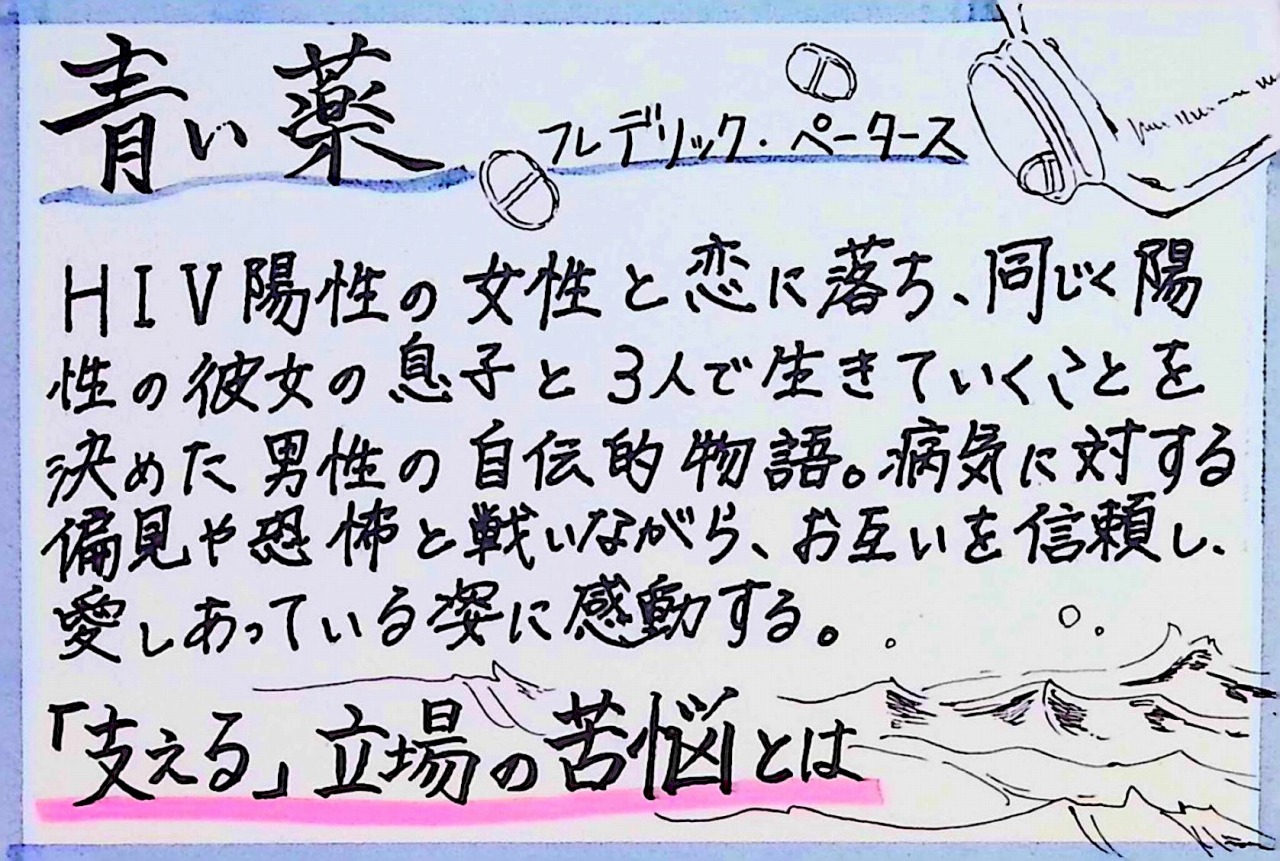 青い薬
フレデリック・ペータース
HIV陽性の女性と恋に落ち、同じく陽
性の彼女の息子と3人で生きていくことを
決めた男性の自伝的物語。病気に対する
偏見や恐怖と戦いながら、お互いを信頼し、
愛しあっている姿に感動する。
「支える」立場の苦悩とは